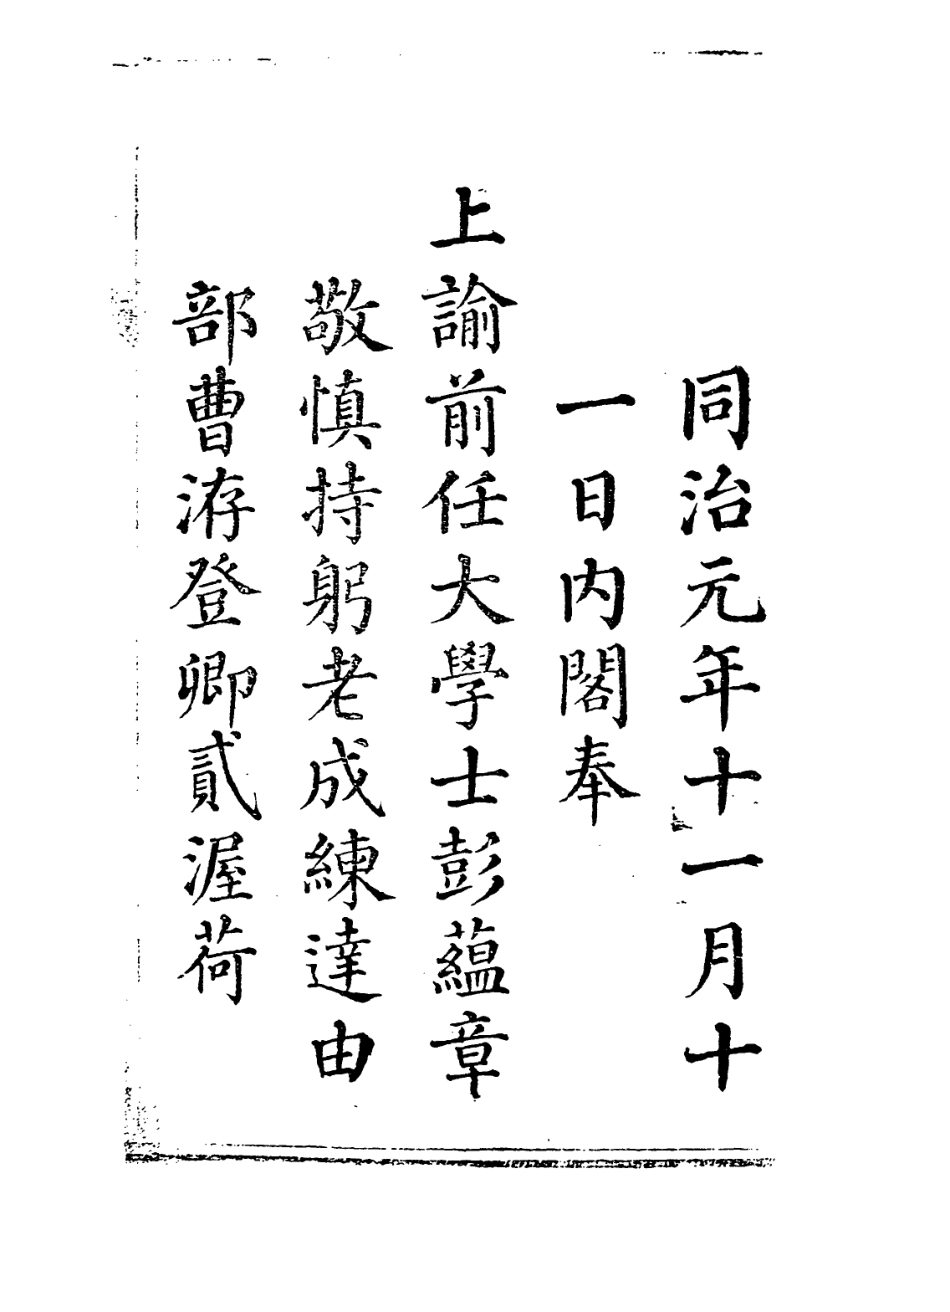 同治元年十一月十
一日內閣奉
上諭前任大學士彭蘊章
敬慎持躬老成練達由
部曹洊登卿貳渥荷